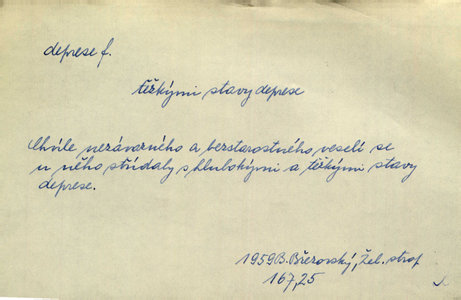 deprese f.
těžkými stavy deprese
Chvíle nezávazného a bezstarostného veselí se
u něho střídaly s hlubokými a těžkými stavy
deprese.
1959 B. Březovský, Žel. strop
167,25